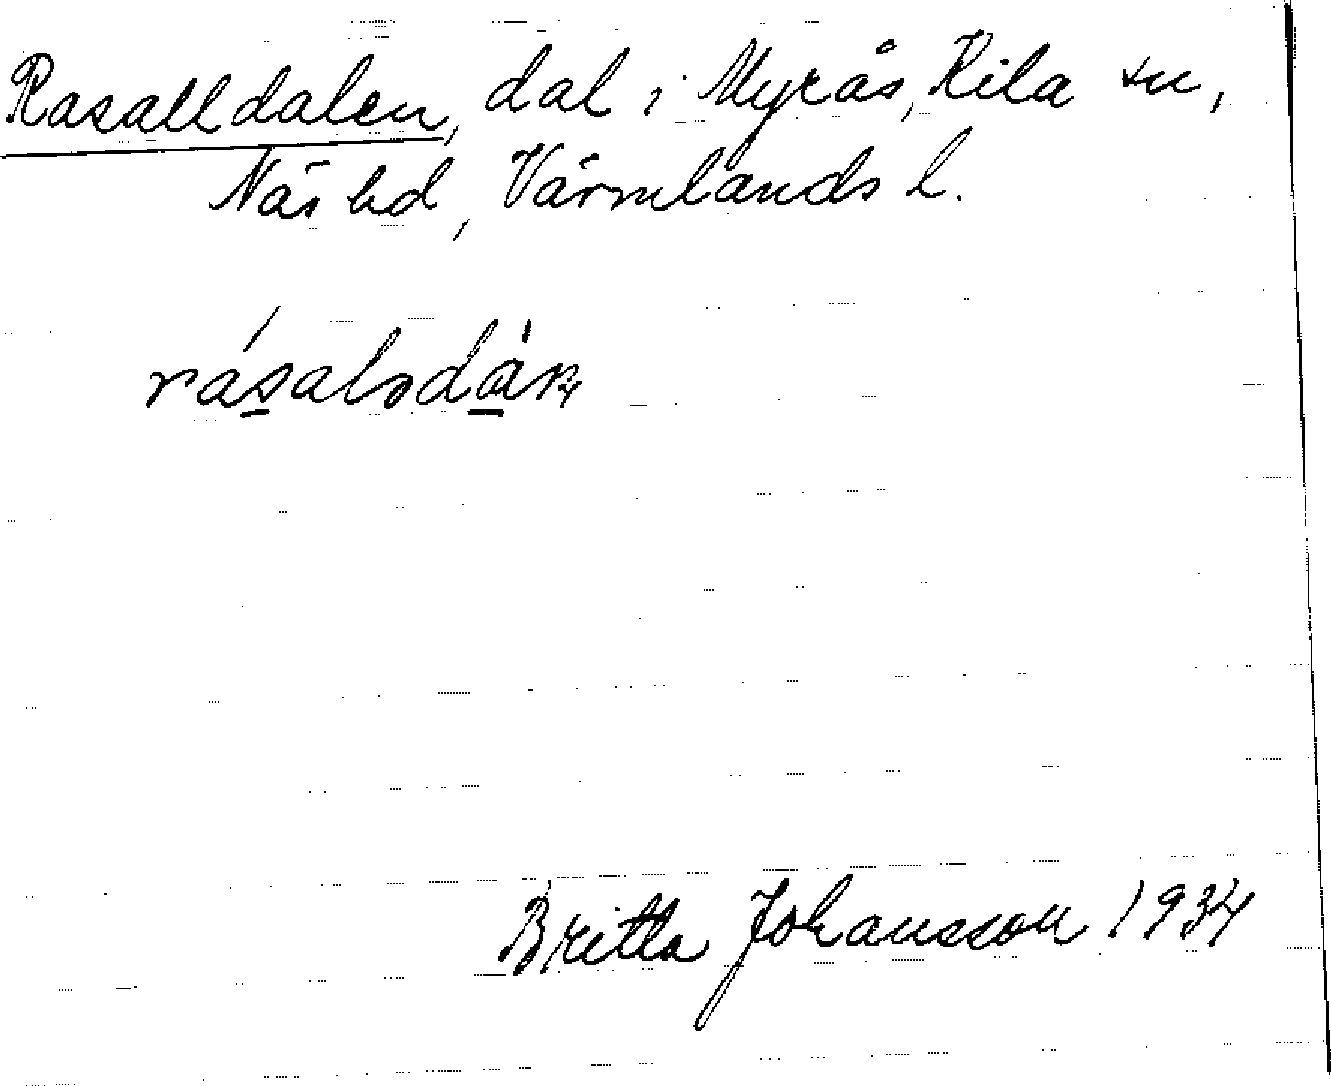 Rasalldalen, dal i Myrås, Kila sn,
Näs hd, Värmlands l.
Britta Johansson 1934